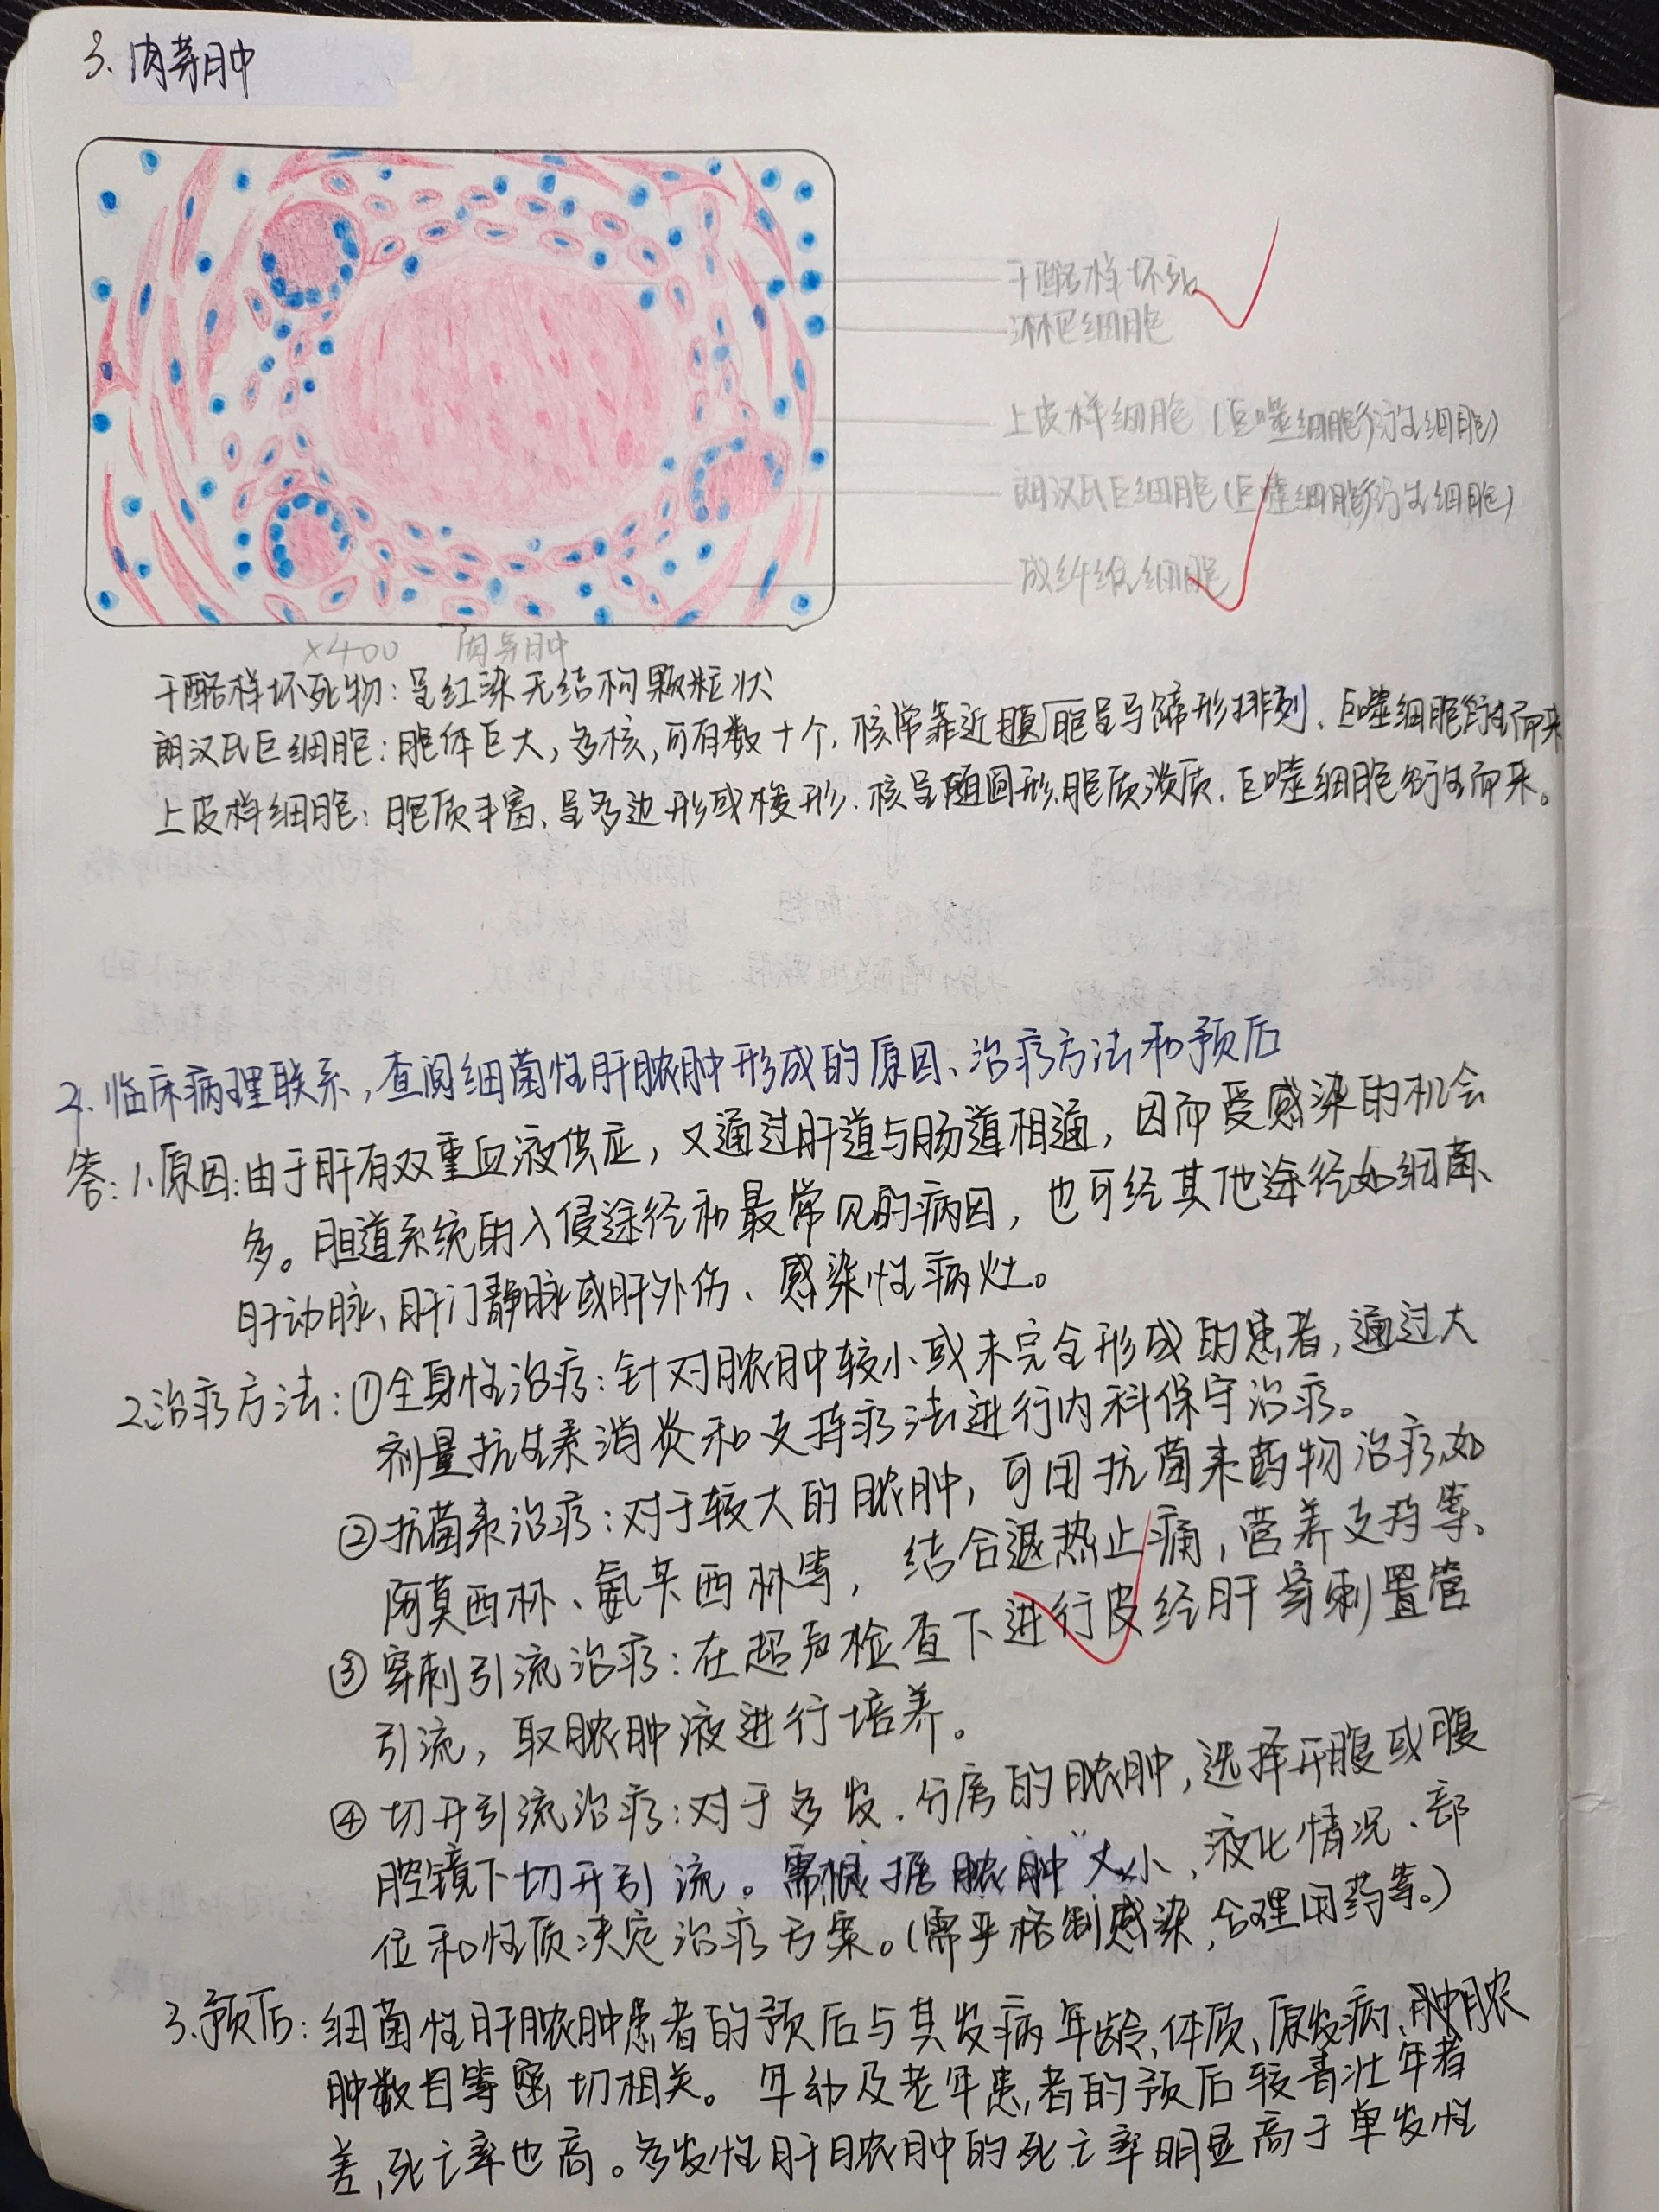 3. 肉芽肿
干酪样坏死
淋巴细胞
上皮样细胞（巨噬细胞衍生细胞）
朗汉氏巨细胞（巨噬细胞衍生细胞）
成纤维细胞
×400 肉芽肿
干酪样坏死物：呈红染无结构颗粒状
朗汉氏巨细胞：胞体巨大，多核，可有数十个，核常靠近胞呈马蹄形排列、巨噬细胞衍生而来
上皮样细胞：胞质丰富、呈多边形或梭形、核呈椭圆形，胞质淡质、巨噬细胞衍生而来。
2. 临床病理联系，查阅细菌性肝脓肿形成的原因、治疗方法和预后
答：1、原因：由于肝有双重血液供应，又通过肝道与肠道相通，因而受感染的机会
多。胆道系统的入侵途径和最常见的病因，也可经其他途径如细菌、
肝动脉、肝门静脉或肝外伤、感染性病灶。
2、治疗方法：①全身性治疗：针对脓肿较小或未完全形成的患者，通过大
剂量抗生素消炎和支持疗法进行内科保守治疗。
②抗菌素治疗：对于较大的脓肿，可用抗菌素药物治疗，如
阿莫西林、氨苄西林等，结合退热止痛，营养支持等、
③穿刺引流治疗：在超声检查下进行皮经肝穿刺置管
引流，取脓肿液进行培养。
④切开引流治疗：对于多发、分房的脓肿，选择开腹或腹
腔镜下切开引流。需根据脓肿大小、液化情况、部
位和性质决定治疗方案。（需严格制感染，合理用药等。）
3、预后：细菌性肝脓肿患者的预后与其发病年龄、体质、原发病、脓
肿数目等密切相关。年幼及老年患者的预后较青壮年者
差，死亡率也高。多发性肝脓肿的死亡率明显高于单发性